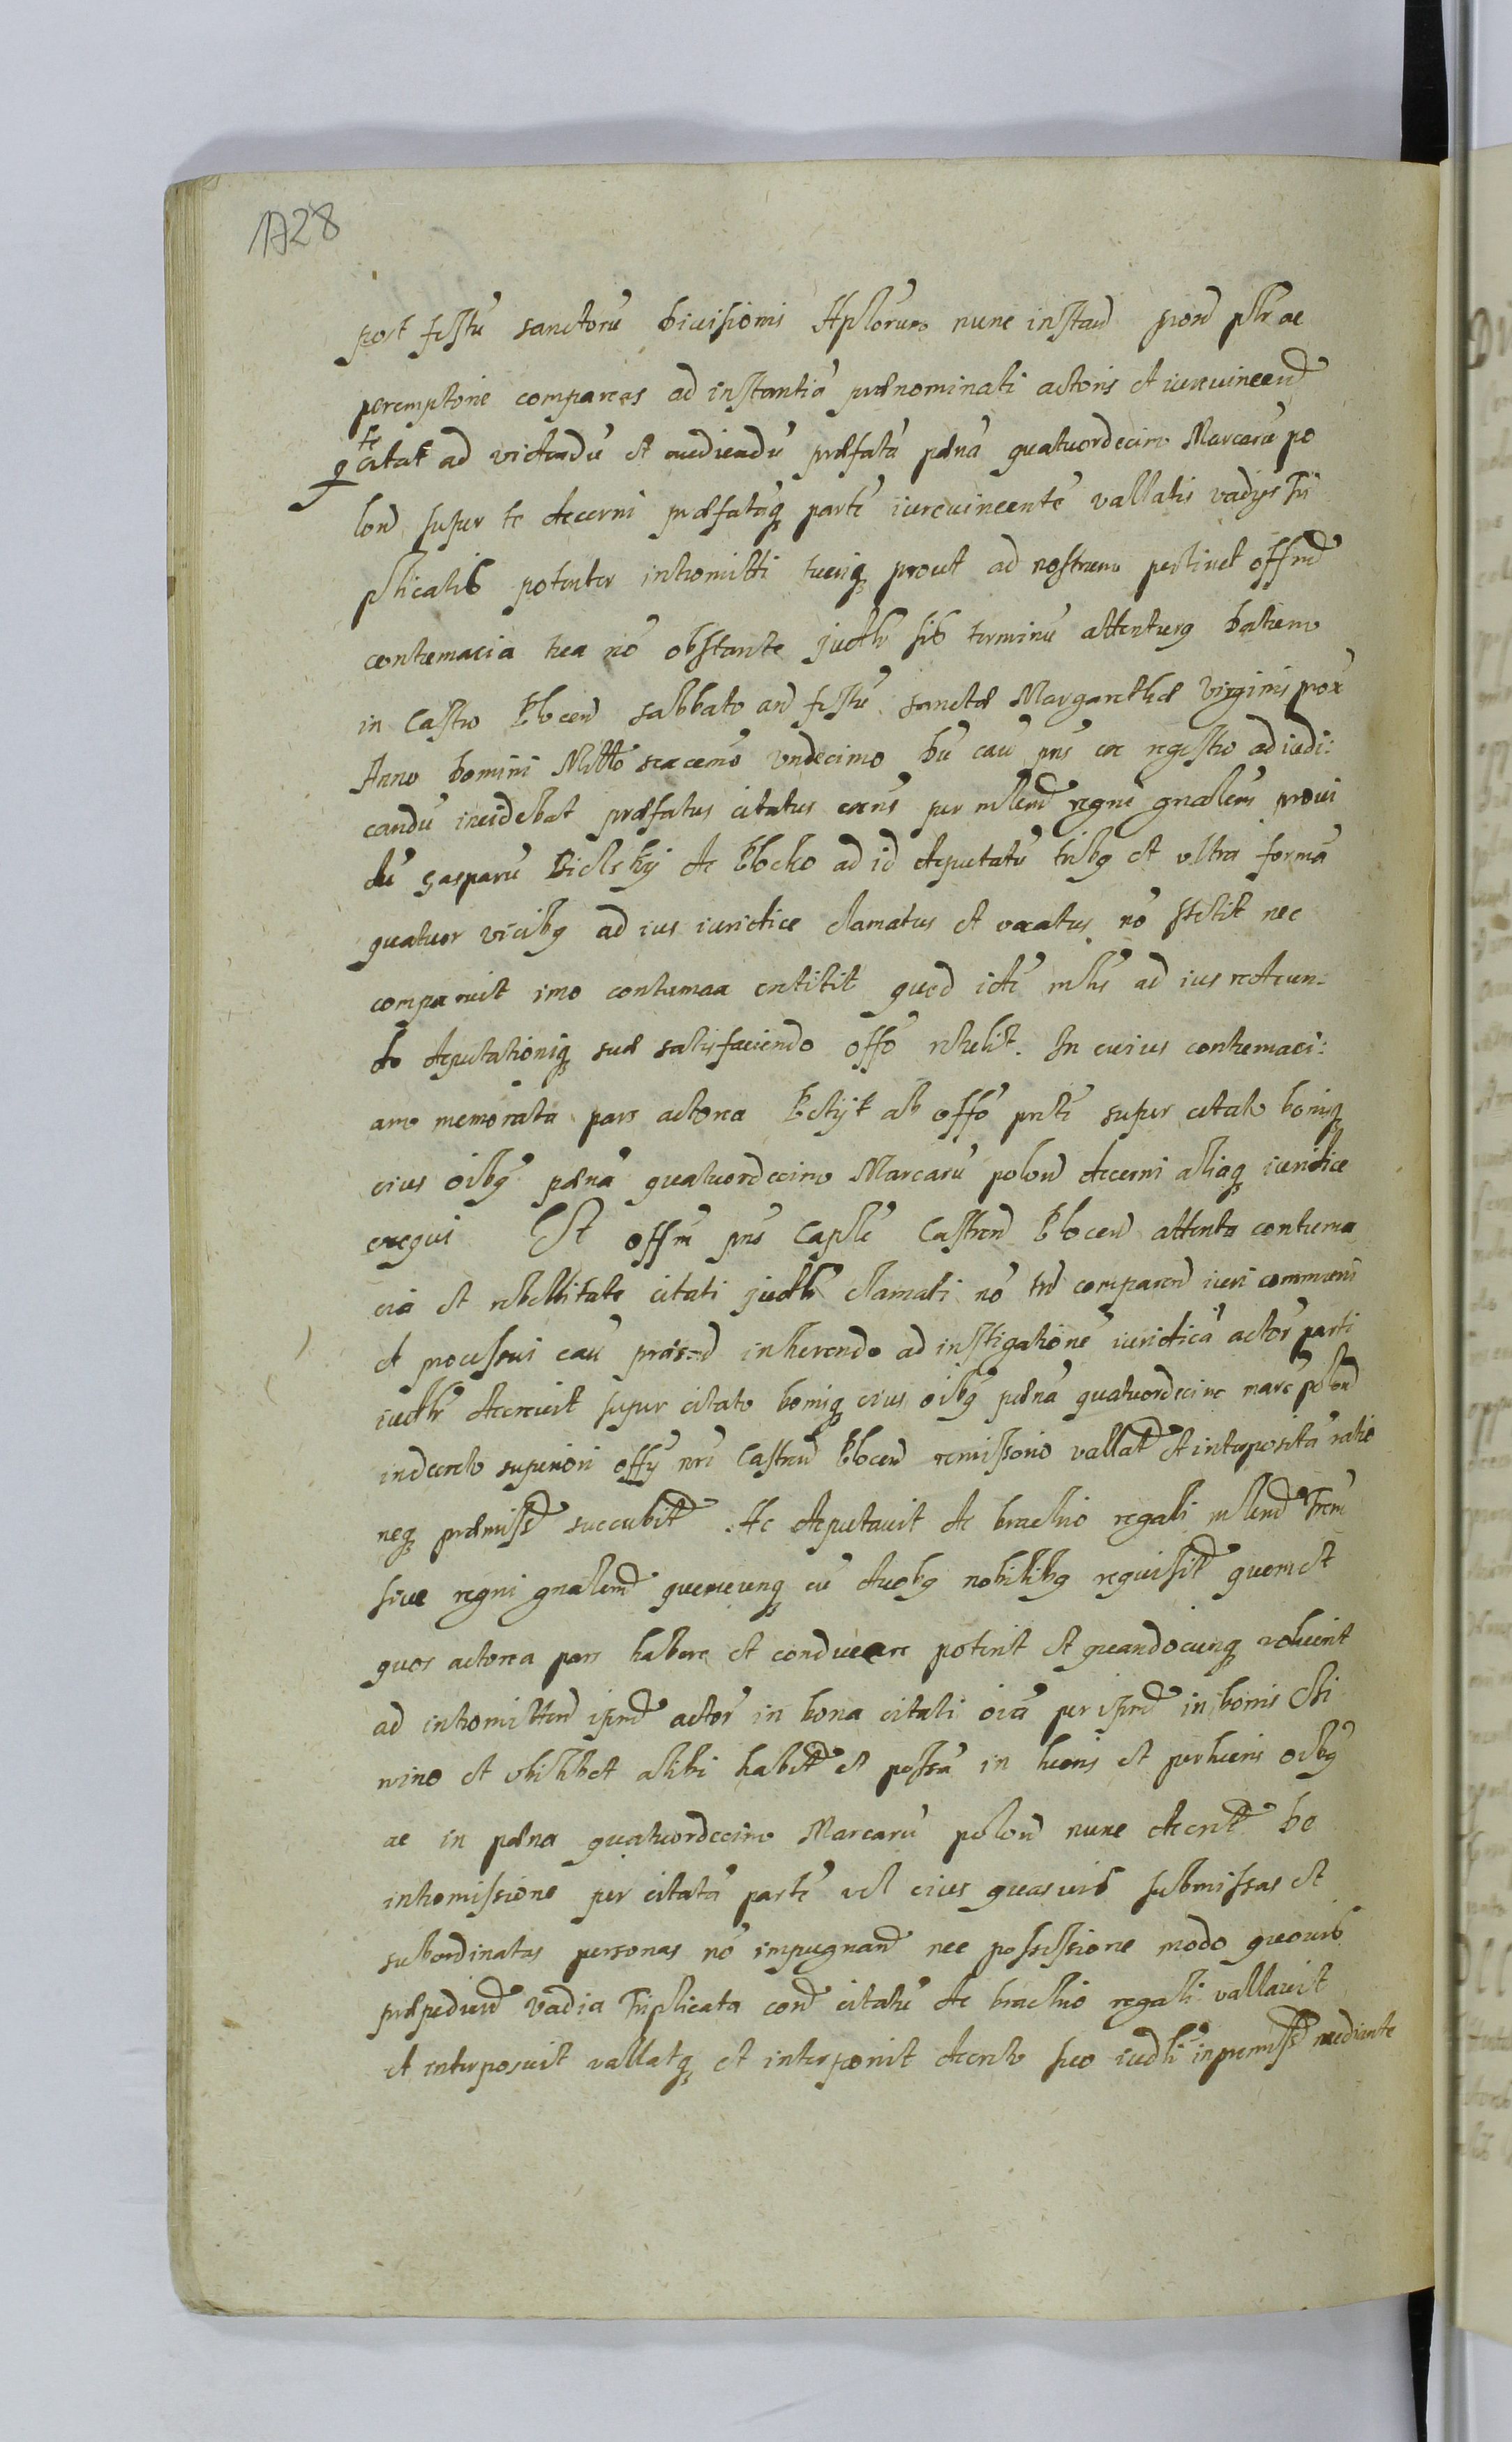 1728
post festũ sanctorũ Divisionis Aplorum nunc instan pron pltr ac
peremptorie compareas ad instantiã prænominati actoris et iurevincend
q te citat ad videndũ et audiendũ præfatã pænã quatuordecim Marcarũ po
lon super te decerni præfatãq partẽ iurevincentẽ vallatis vadys tri
plicatis potenter intromitti tueriq prout ad nostrum pertinet offm
contumacia tua nõ obstante judtr sis terminũ attenturg Datum
in Castro Plocen sabbato an festũ sanctæ Margarethæ Virginis prox
Anno Domini Millo sexcemo undecimo Dũ cau pns ex regestro ad iudi:
candũ incidebat præfatus citatus exns per mlem regni gnalem provi
dũ Gasparũ Bielsky de Plocko ad id deputatũ tribg et ultra formã
quatuor vicibg ad ius iuridice clamatus et vocatus nõ stetit nec
comparuit imo contumax extitit quod idẽ mlis ad ius redeun:
do deputationiq suæ satisfaciendo offõ retulit. In cuius contumaci:
am memorata pars actorea Petyt ab offõ pnti super citato bonisq
eius oibg pænã quatuordecim Marcarũ polon decerni aliaq iuridice
exequi Et offm pns Caplẽ Castren Plocen attenta contuma
cia et rebellitate citati judtr clamati nõ tn comparen iuri communi
et processui cau inherendo ad instigationẽ iuridicã actor parti
iudtr decrevit super citato bonisq eius oibg pænã quatuordecim marc polon
in decreto superiori offy nri Castren Plocen remissorio vallat et interposita ratio
neq præmiss succubit Ac deputavit de brachio regali mlem Trem
sive regni gnalem quemcunq cũ duobg nobilibg requisit quem et
quos actorea pars habere et conducere poterit et quandocunq voluerit
ad intromitten ipm actor in bona citati oia per ipm in bonis
nino et ubilibet alibi habit et possa in lucris et perlucris oibg
ac in pæna quatuordecim Marcarũ polon nunc decret De
intromissione per citatã partẽ vel eius quasvis submissas et
subordinatas personas nõ impugnan nec possessione modo quovis
præpedien vadia Triplicata con citatũ de brachio regali vallavit
et interposuit vallatq et interponit decreto suo iudli in premiss mediante